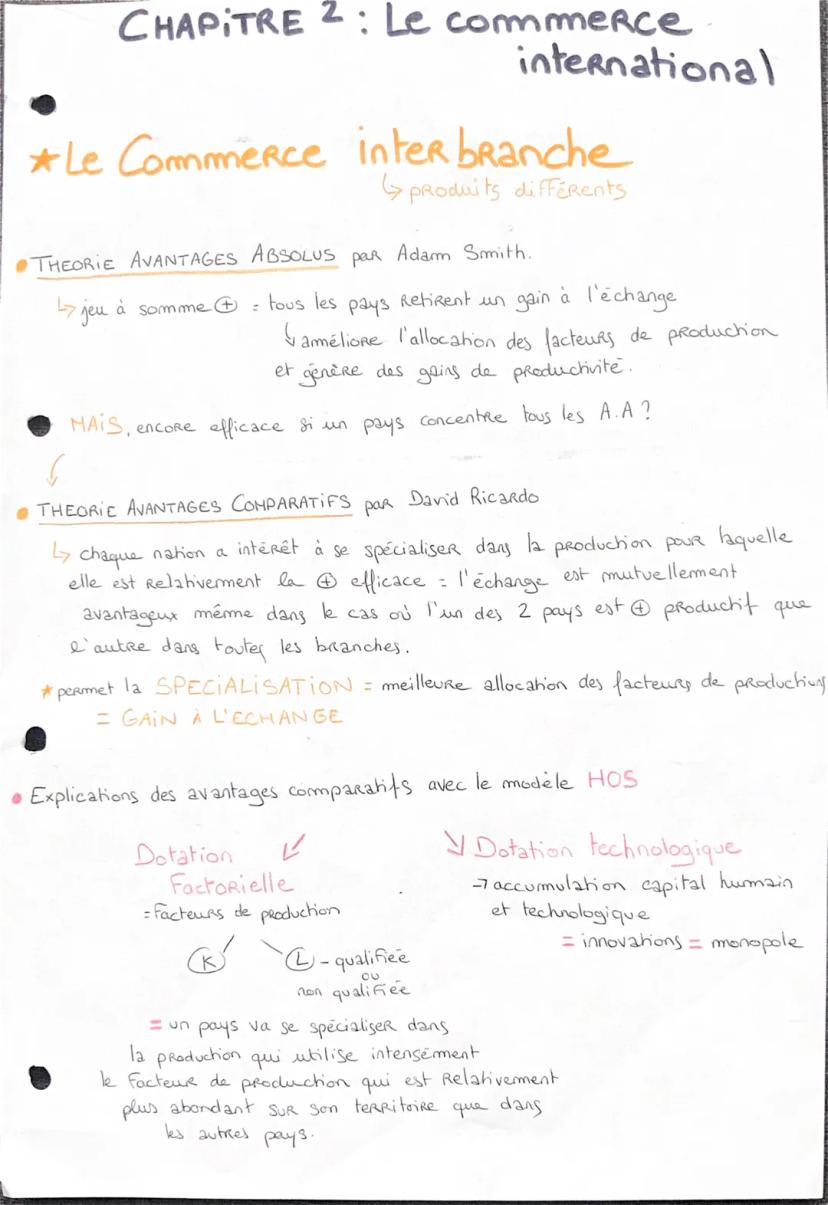 CHAPITRE 2 : Le commerce
international
★ Le Commerce interbranche
↳ produits différents
• THEORIE AVANTAGES ABSOLUS par Adam Smith.
↳ jeu à somme ⊕ = tous les pays retirent un gain à l'échange
↳ améliore l'allocation des facteurs de production
et génère des gains de productivité.
MAIS, encore efficace si un pays concentre tous les A.A ?
• THEORIE AVANTAGES COMPARATIFS par David Ricardo
↳ chaque nation a intérêt à se spécialiser dans la production pour laquelle
elle est relativement la ⊕ efficace = l'échange est mutuellement
avantageux même dans le cas où l'un des 2 pays est ⊕ productif que
l'autre dans toutes les branches.
★ permet la SPECIALISATION = meilleure allocation des facteurs de productions
= GAIN À L'ECHANGE
• Explications des avantages comparatifs avec le modèle HOS
Dotation ↙
Factorielle
= Facteurs de production
K L - qualifiée
ou
non qualifiée
= un pays va se spécialiser dans
la production qui utilise intensément
le facteur de production qui est relativement
plus abondant sur son territoire que dans
les autres pays.
↘ Dotation technologique
→ accumulation capital humain
et technologique
= innovations = monopole